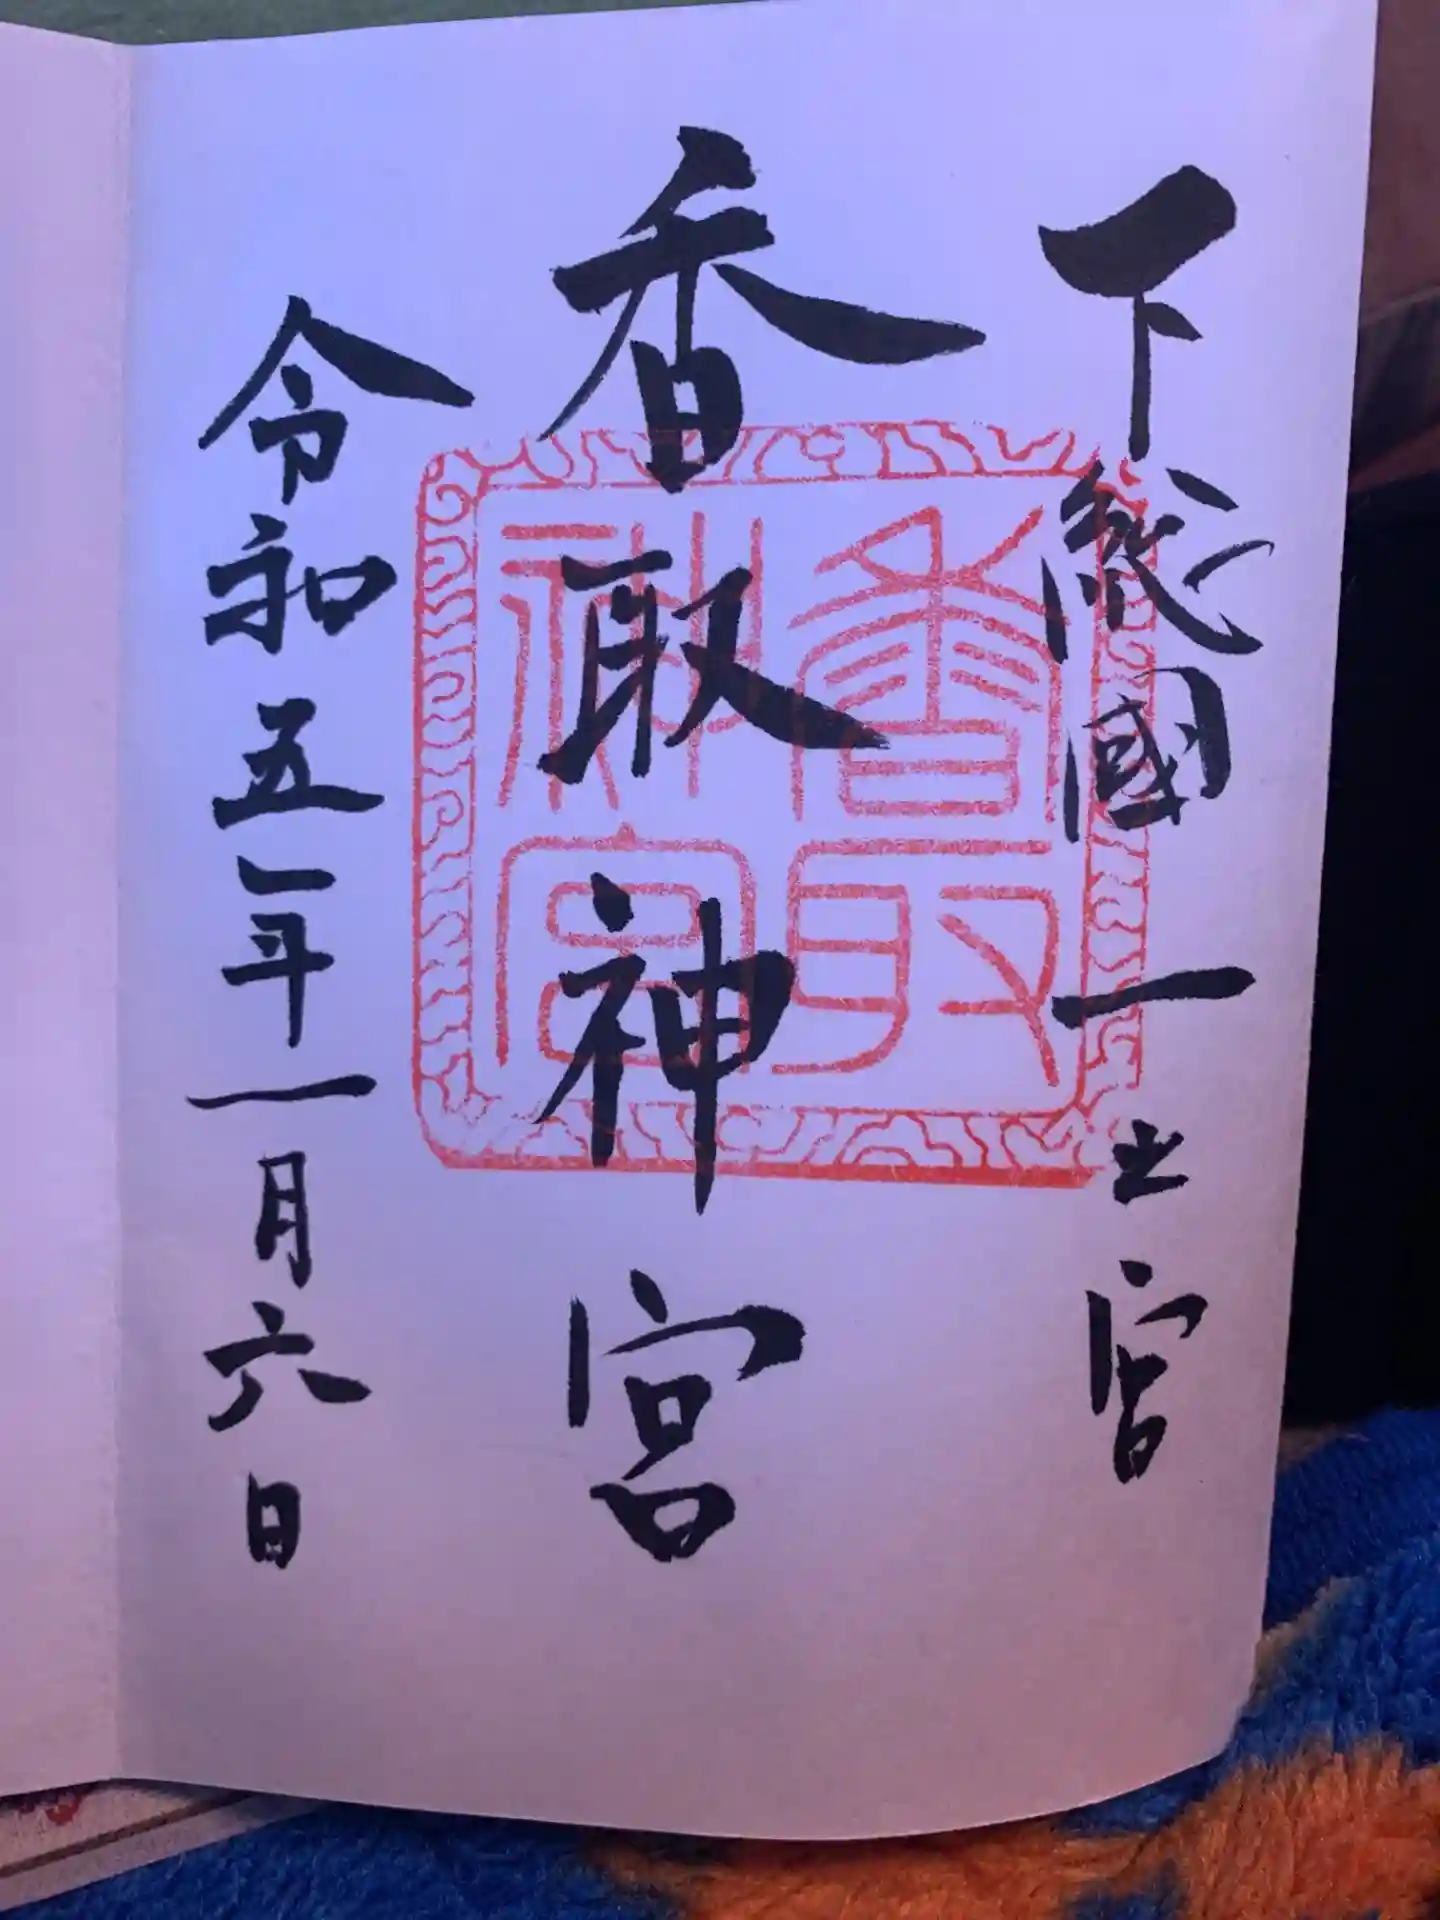 下総國一之宮
香取神宮
令和五年一月六日
香取
神宮